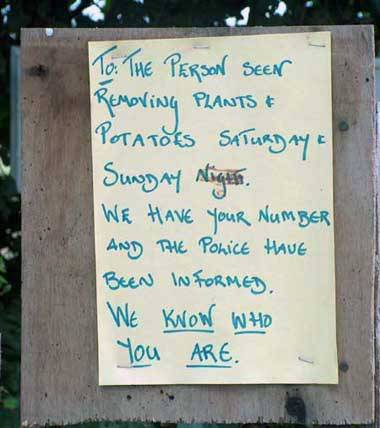 To: The Person seen
Removing Plants &
Potatoes Saturday &
Sunday Night.
We have your number
and the Police have
been informed.
We know who
you are.